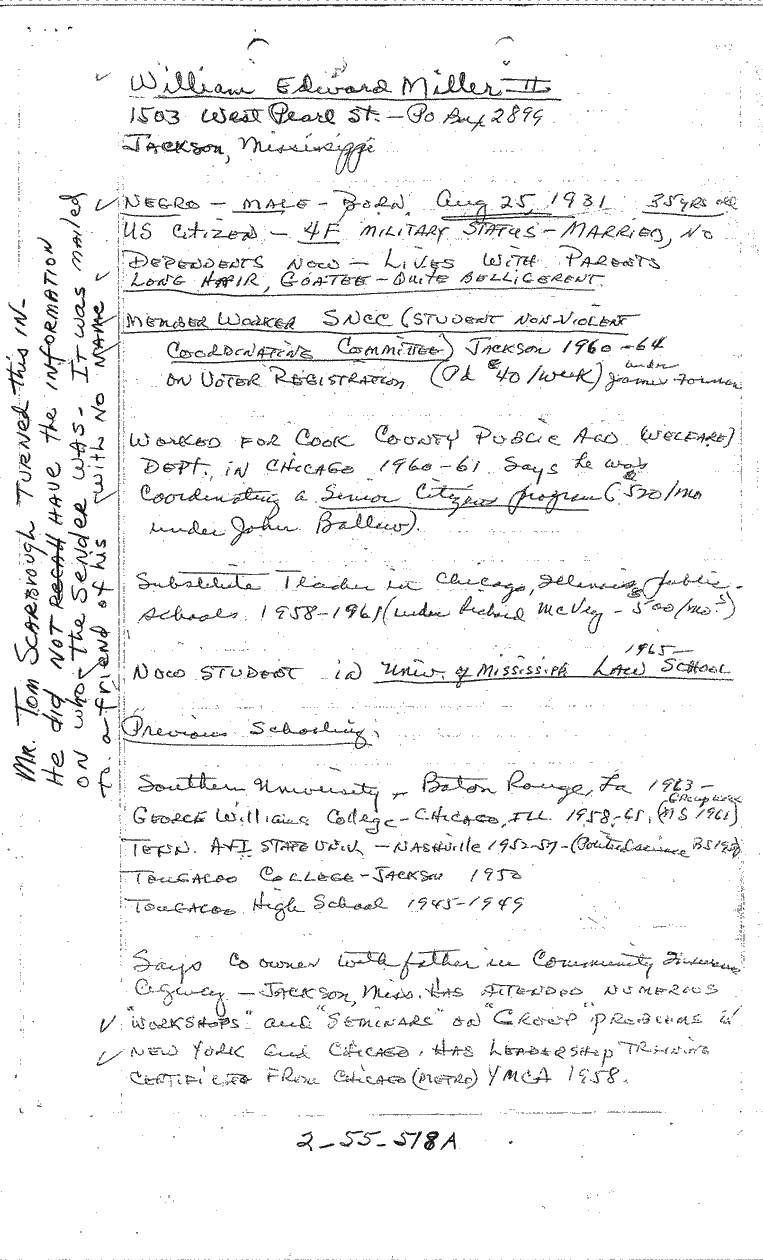 William Edward Miller II
1503 West Pearl St. - PO Box 2899
Jackson, Mississippi
NEGRO - MALE - BORN, Aug 25, 1931 35 yrs old
US Citizen - 4F MILITARY STATUS - MARRIED, NO
DEPENDENTS NOW - LIVES WITH PARENTS
LONG HAIR, GOATEE - QUITE BELLIGERENT.
MEMBER WORKER SNCC (STUDENT NON-VIOLENT
COORDINATING COMMITTEE) JACKSON 1960-64
ON VOTER REGISTRATION (Pd $40/week) under James Forman
WORKED FOR COOK COUNTY PUBLIC AID (WELFARE)
DEPT. IN CHICAGO 1960-61. Says he was
Coordinating a Senior Citizens program ($520/mo
under John Ballew).
Substitute Teacher in Chicago, Illinois, public
schools 1958-1961 (under Richard McVey - $500/mo)
NOW STUDENT IN Univ. of Mississippi LAW SCHOOL 1965-
Previous Schooling,
Southern University - Baton Rouge, La 1963-
GEORGE Williams College - CHICAGO, ILL. 1958-61, (MS 1961) Group work
TENN. A&I STATE UNIV. - NASHVILLE 1952-57 - (Political science BS
TOUGALOO COLLEGE - JACKSON 1950
TOUGALOO High School 1945-1949
Says co owner with father in Community Insurance
Agency - JACKSON, Miss. HAS ATTENDED NUMEROUS
"WORKSHOPS" and "SEMINARS" ON "GROUP" PROBLEMS in
NEW YORK and CHICAGO. HAS LEADERSHIP TRAINING
CERTIFICATE FROM CHICAGO (METRO) YMCA 1958.
2-55-518A
MR. TOM SCARBROUGH TURNED this IN-
He did NOT HAVE the INFORMATION
ON who the SENDER WAS. It was mailed
to a friend of his with NO NAME